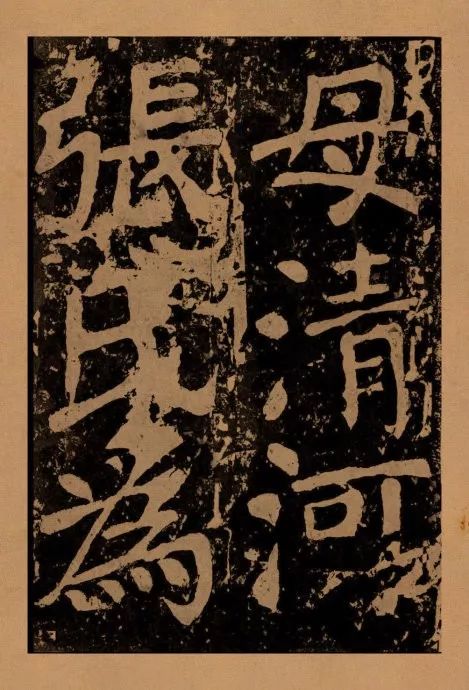 母清河
張氏為